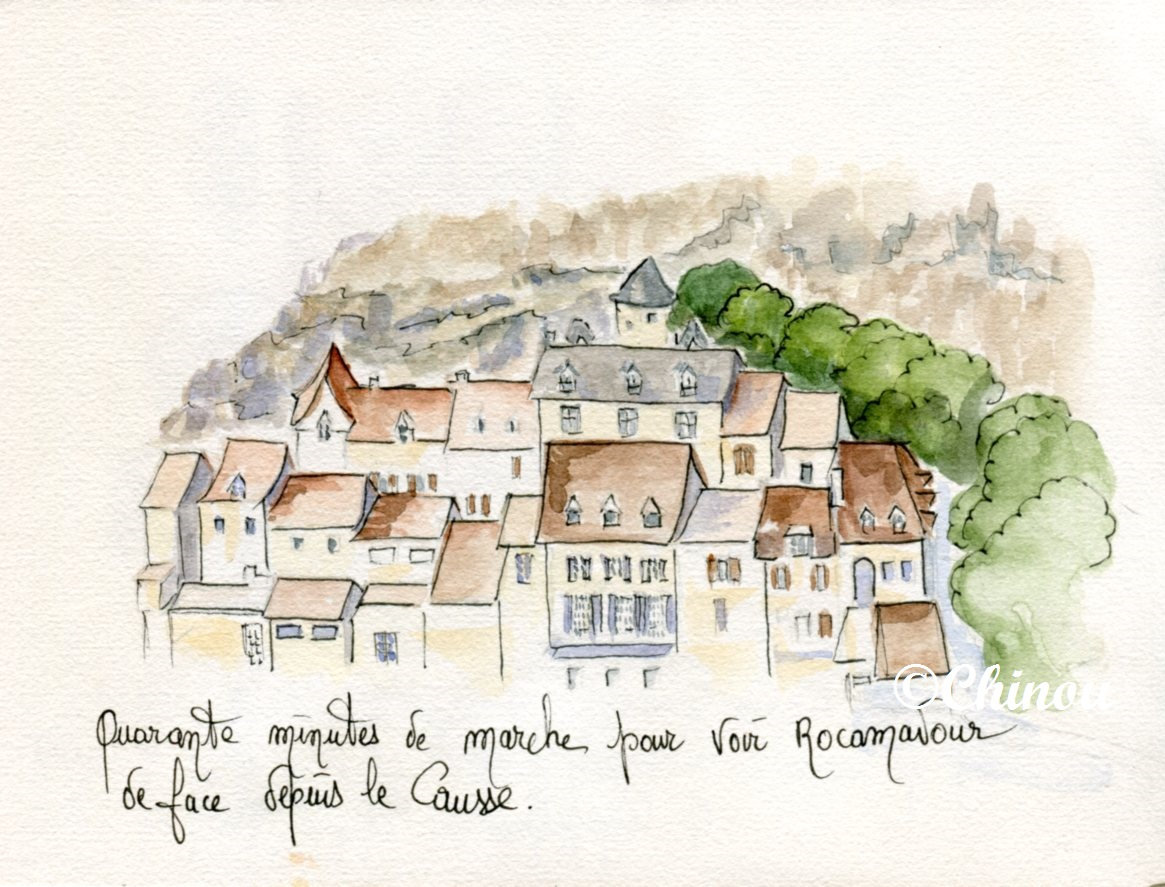 ©Chinou
Quarante minutes de marche pour voir Rocamadour
de face depuis le Causse.